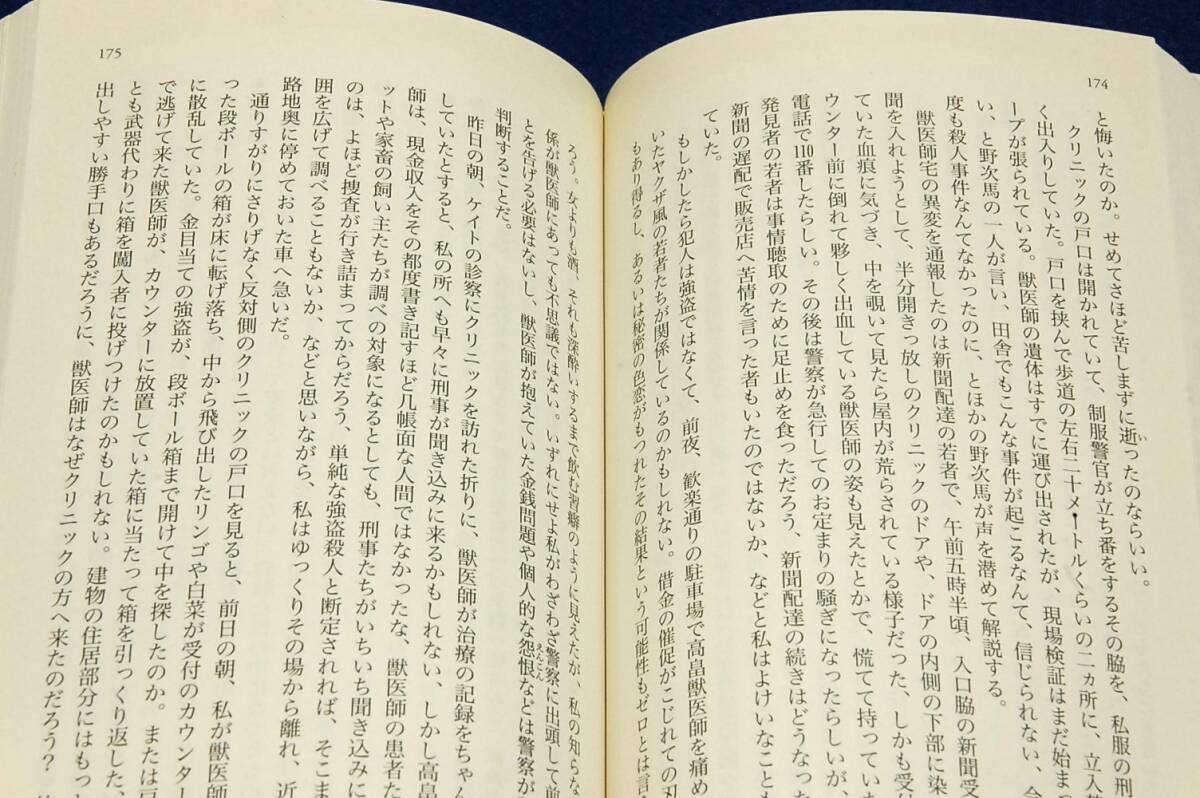 174
と悔いたのか。せめてさほど苦しまずに逝ったのならいい。
い
クリニックの戸口は開かれていて、制服警官が立ち番をするその脇を、私服の刑
く出入りしていた。戸口を挟んで歩道の左右二十メートルくらいの二ヵ所に、立入
ープが張られている。獣医師の遺体はすでに運び出されたが、現場検証はまだ始まっ
い、と野次馬の一人が言い、田舎でもこんな事件が起こるなんて、信じられない、今
度も殺人事件なんてなかったのに、とほかの野次馬が声を潜めて解説する。
獣医師宅の異変を通報したのは新聞配達の若者で、午前五時半頃、入口脇の新聞受
聞を入れようとして、半分開きっ放しのクリニックのドアや、ドアの内側の下部に染
ていた血痕に気づき、中を覗いて見たら屋内が荒らされている様子だった、しかも受
ウンター前に倒れて夥しく出血している獣医師の姿も見えたとかで、慌てて持ってい
電話で110番したらしい。その後は警察が急行してのお定まりの騒ぎになったらしいが、
発見者の若者は事情聴取のために足止めを食っただろう、新聞配達の続きはどうなった
新聞の遅配で販売店へ苦情を言った者もいたのではないか、などと私はよけいなことも
ていた。
もしかしたら犯人は強盗ではなくて、前夜、歓楽通りの駐車場で高畠獣医師を痛め
いたヤクザ風の若者たちが関係しているのかもしれない。借金の催促がこじれての刃
もあり得るし、あるいは秘密の色恋がもつれたその結果という可能性もゼロとは言
175
ろう。女よりも酒、それも深酔いするまで飲む習癖のように見えたが、私の知らな
係が獣医師にあっても不思議ではない。いずれにせよ私がわざわざ警察に出頭して前
とを告げる必要はないし、獣医師が抱えていた金銭問題や個人的な怨恨などは警察が
えんこん
判断することだ。
昨日の朝、ケイトの診察にクリニックを訪れた折りに、獣医師が治療の記録をちゃん
していたとすると、私の所へも早々に刑事が聞き込みに来るかもしれない、しかし高畠
師は、現金収入をその都度書き記すほど几帳面な人間ではなかったな、獣医師の患者た
ットや家畜の飼い主たちが調べの対象になるとしても、刑事たちがいちいち聞き込みに
のは、よほど捜査が行き詰まってからだろう、単純な強盗殺人と断定されれば、そこま
囲を広げて調べることもないか、などと思いながら、私はゆっくりその場から離れ、近
路地奥に停めておいた車へ急いだ。
通りすがりにさりげなく反対側のクリニックの戸口を見ると、前日の朝、私が獣医
った段ボールの箱が床に転げ落ち、中から飛び出したリンゴや白菜が受付のカウンター
に散乱していた。金目当ての強盗が、段ボール箱まで開けて中を探したのか。または
で逃げて来た獣医師が、カウンターに放置していた箱に当たって箱を引っくり返した、
とも武器代わりに箱を闖入者に投げつけたのかもしれない。建物の住居部分にはもっ
出しやすい勝手口もあるだろうに、獣医師はなぜクリニックの方へ来たのだろう？